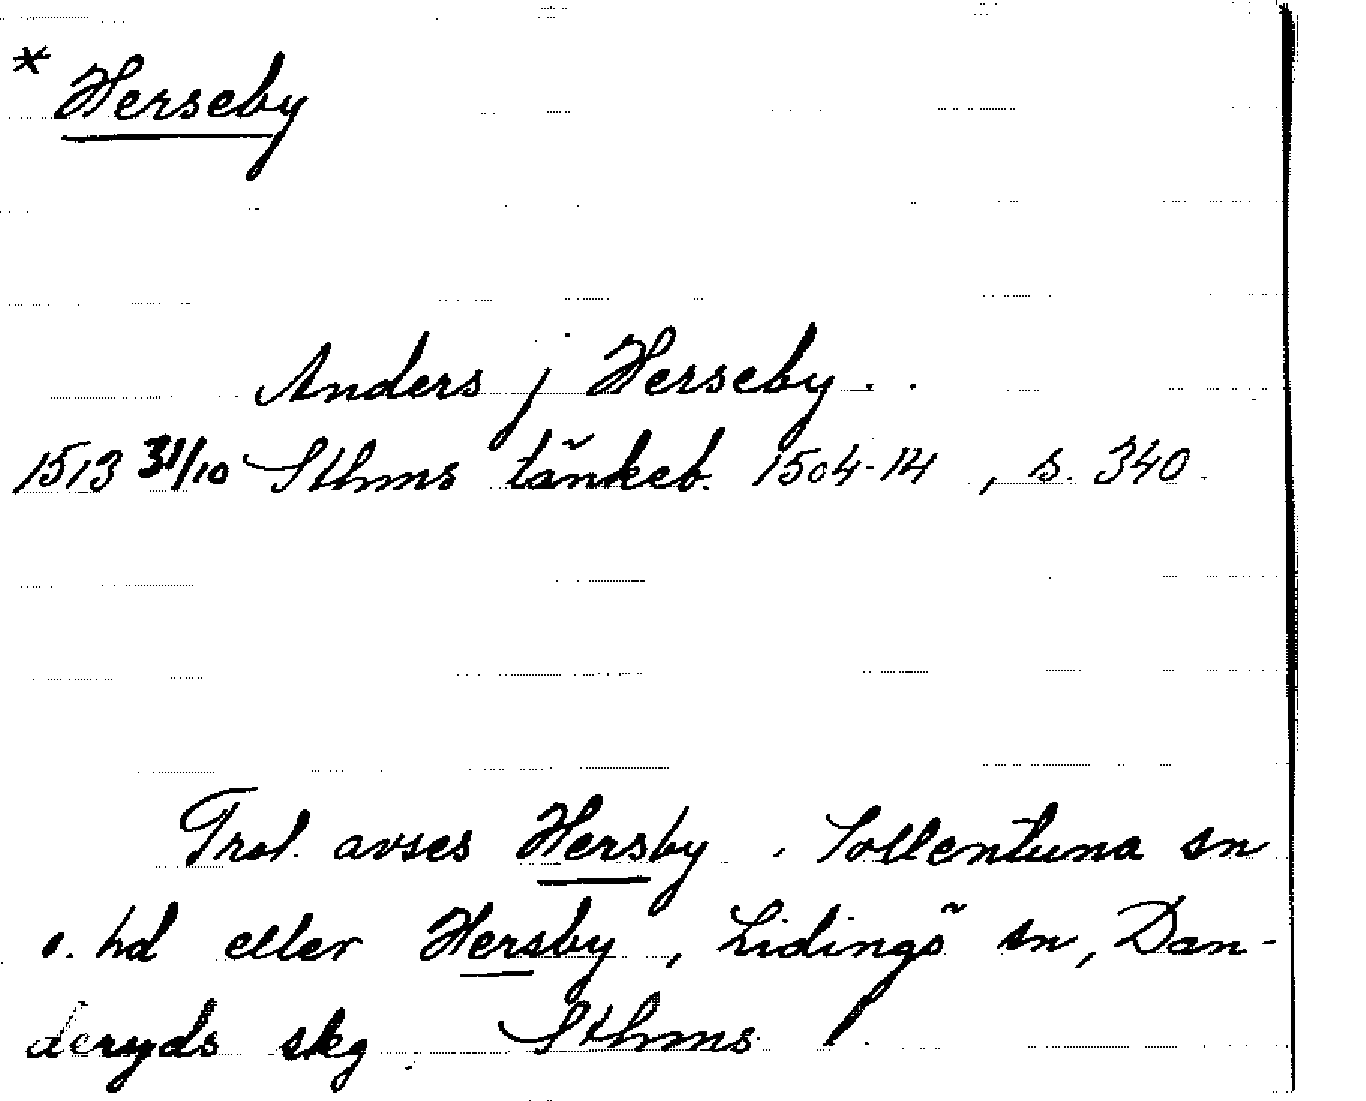 * Herseby
Anders j Herseby . .
1513 31/10 Sthms tänkeb. 1504-14 , s. 340.
Trol. avses Hersby , Sollentuna sn
o. hd eller Hersby , Lidingö sn, Dan-
deryds skg Sthms l.